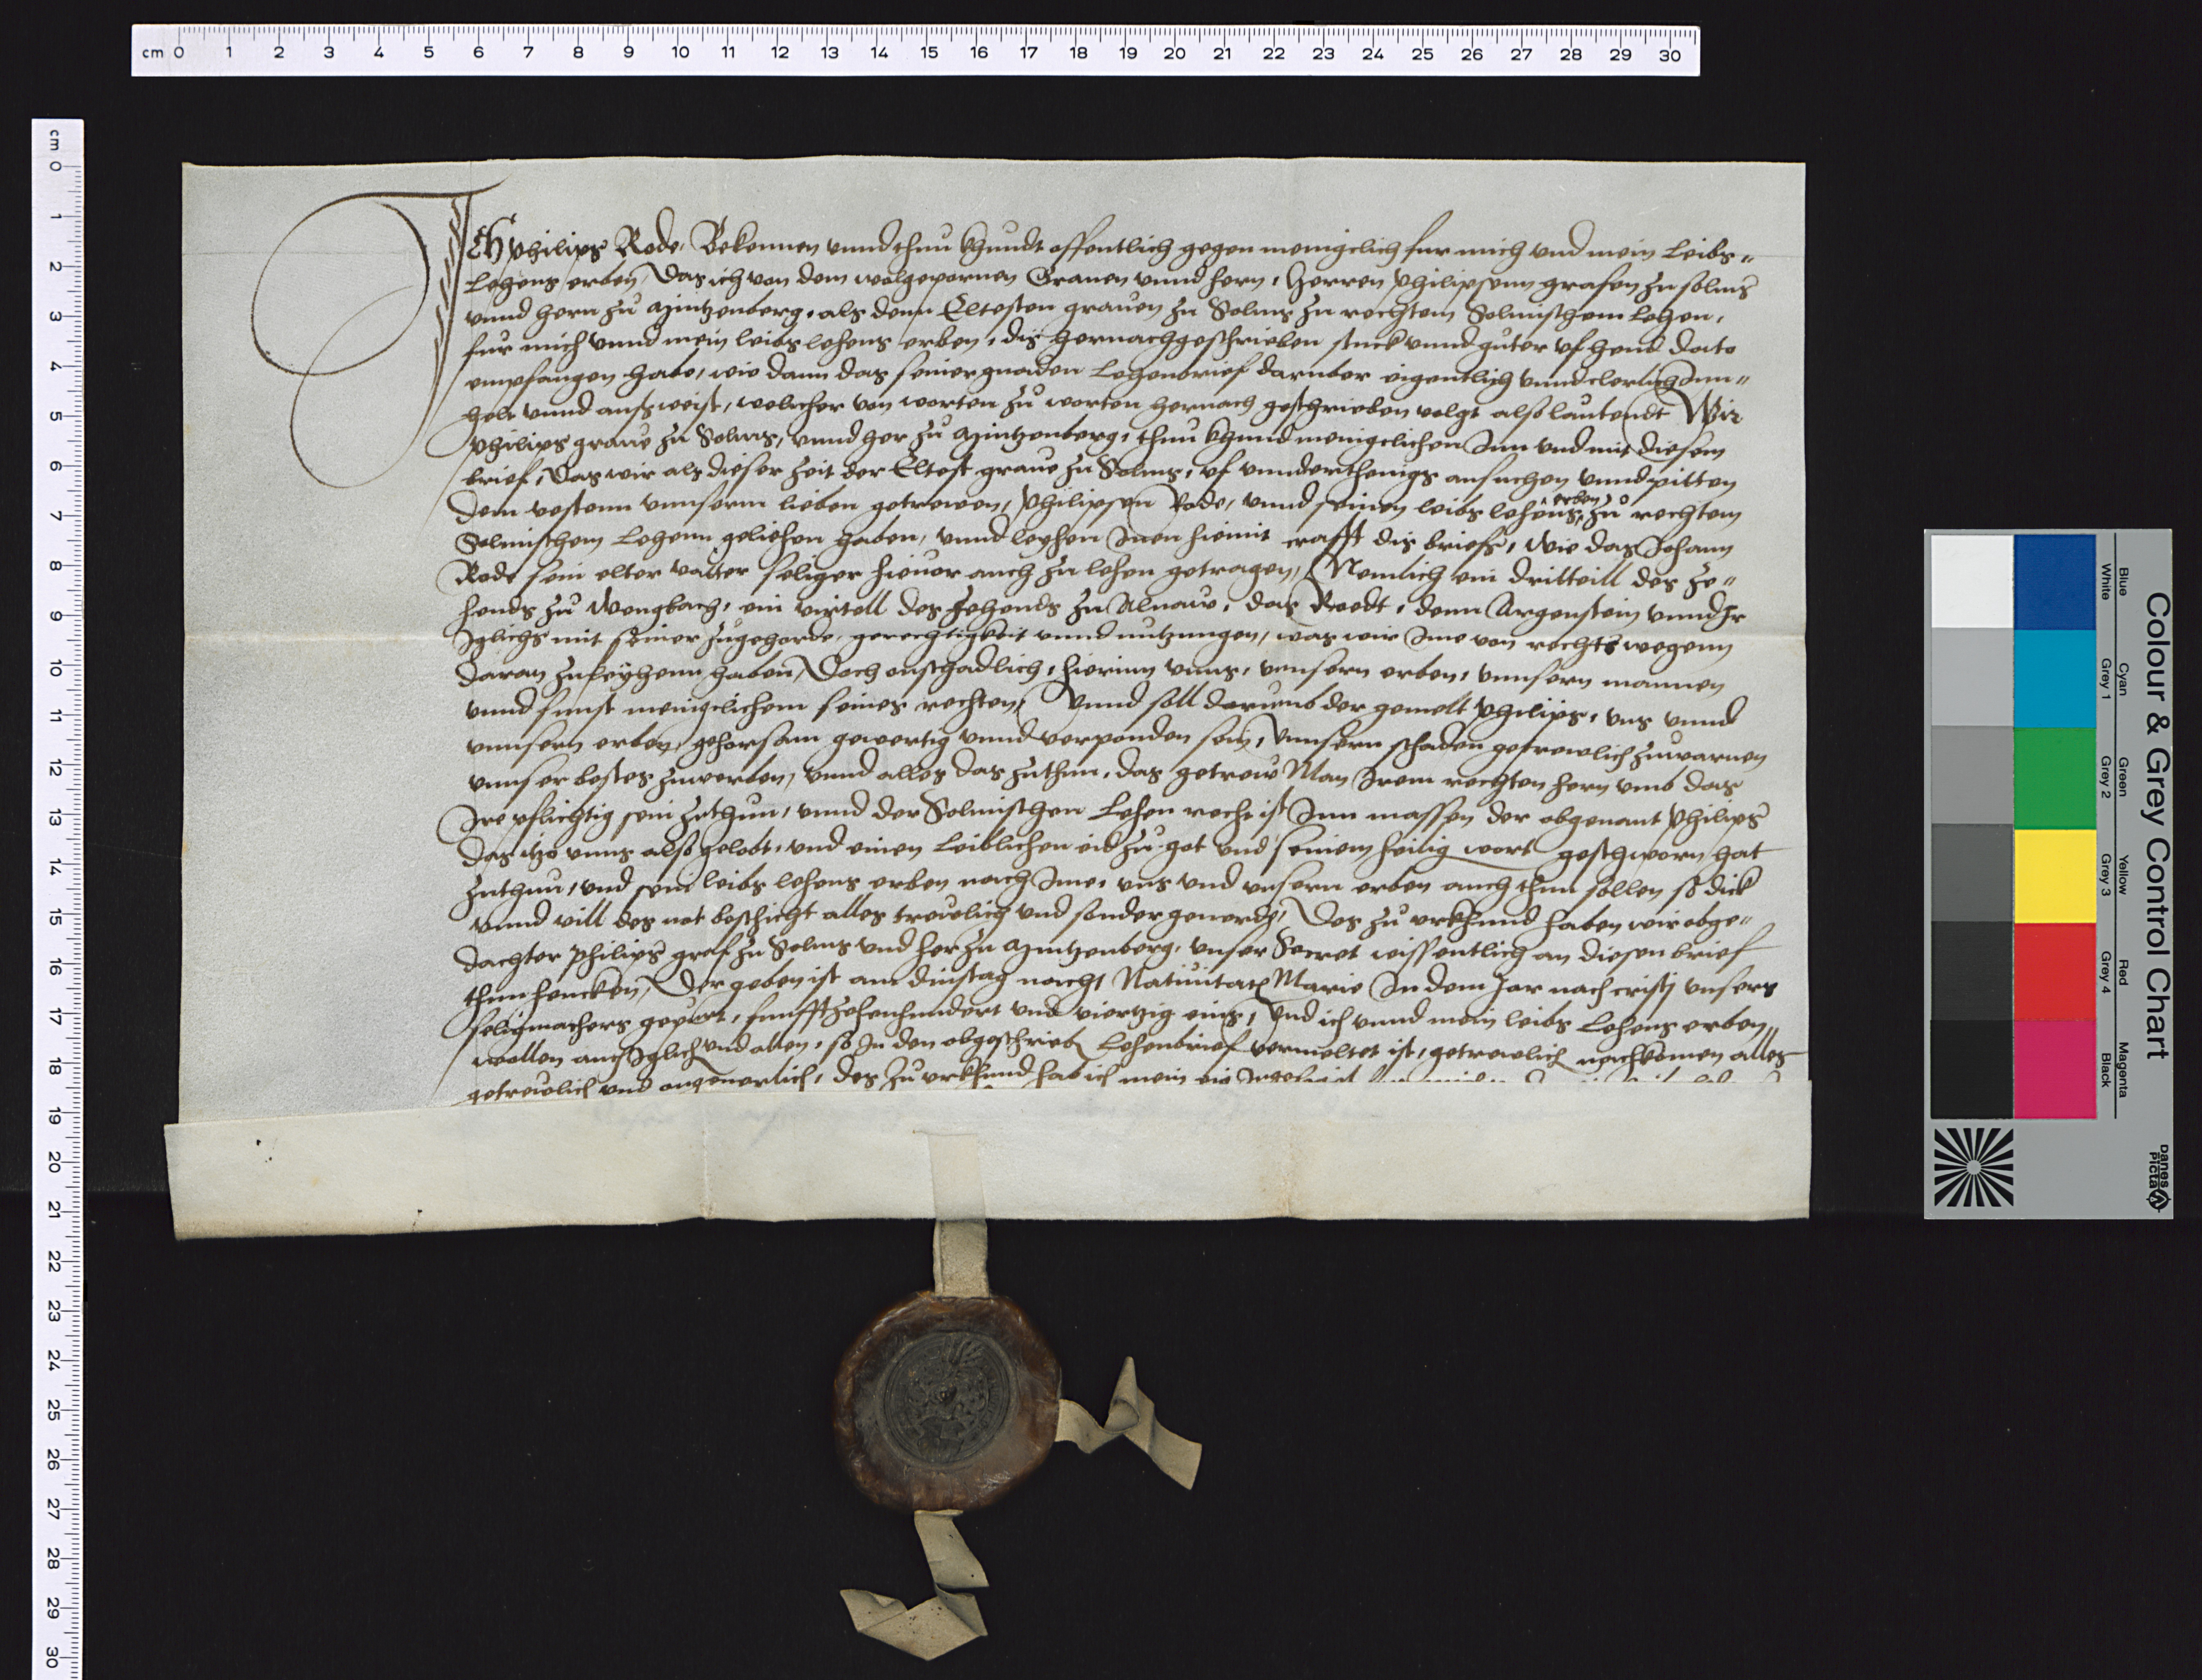 cm 0 1 2 3 4 5 6 7 8 9 10 11 12 13 14 15 16 17 18 19 20 21 22 23 24 25 26 27 28 29 30
cm 0 1 2 3 4 5 6 7 8 9 10 11 12 13 14 15 16 17 18 19 20 21 22 23 24 25 26 27 28 29 30
ICH Philips Rode, Bekennen unnd thuu khundt offentlich gegen menigclich fur mich und mein leibs„
Lehens erben, Das ich von dem wolgepornen Graven unnd hern, Herren Philipsenn grafen zu solms
unnd hern zu Mintzenberg, als denn Eltesten graven zu Solms zu rechtem Solmischem Lehen,
fur mich unnd mein leibs lehens erben, dis hernachgeschrieben stuck unnd guter uf heud dato
empfangen habe, wie dann das seiner gnaden Lehenbrief darnber eigentlich unnd clerlich Inn„
helt unnd aufsweist, welicher von worten zu worten hernach geschrieben volgt also lautendt Wir
Philips grave zu Solms, unnd her zu Mintzenberg, thuu khund menigclichen Inn und mit diesem
brief, Das wir als dieser zeit der Eltest grave zu Solms, uf underthenigs ansuchen unnd pitten
dem vestenn unnserm lieben getrewen, Philipsen Rode, unnd seinen leibs lehens erben zu rechtem
Solmischem Lehenn geliehen haben, unnd leyhen Inen hiemit crafft dis briefs, wie das Johann
Rode sein elter vatter seliger hievor auch zu lehen getragen, Nemlich ein dritteill des Ze„
hends zu Wengbach, ein virtell des Zehends zu Alnaw, das Roedt, denn Argenstein unnd Ir
Iglichs mit seiner zugehorde, gerechtigkeit unnd nutzungen, was wir Ime von rechts wegenn
daran zuleyhenn haben, Doch onschadlich, hierinn unns, unnsern erben, unnsern mannen
unnd sunst menigclichem seines rechten, Unnd soll darumb der gemelt Philips, uns unnd
unnsern erben, gehorsam gewertig unnd verponden sein, unnsern schaden getrewlich zuwarnen
unnser bestes zuwerben, unnd alles das zuthun, das getrew Man Irem rechten hern umb das
Ire pflichtig sein zuthun, unnd der Solmischen Lehen recht ist Inn massen der obgenant Philips
das itzo unns also gelobt, und einen Leiblichen eid zu got und seinem heilig wort geschworn hat
zuthun, und sein leibs lehens erben nach Ime, uns und unsern erben auch thun sollen so dick
unnd vill des not beschicht alles trewlich und sonder geuerde, Des zu urkhund haben wir obge„
dachter Philips graf zu Solms und her zu Mintzenberg, unser Secret wissentlich an diesen brief
thun hencken, Der geben ist am dinstag nach Nativitatis Marie In dem Jar nach cristi unsers
seligmachers gepurt, funffzehenhundert und viertzig eins, Und ich unnd mein leibs Lehens erben„
wollen auch Iglich und allen, so In den obgeschrieb Lehenbrief vermeltet ist, getrewlich nachkomen alles
getrewlich und ongeuerlich, des zu urkhund hab ich mein
Colour & Grey Control Chart
Blue Cyan Green Yellow Red Magenta
White Grey 1 Grey 2 Grey 3 Grey 4 Black
Danes
Picta